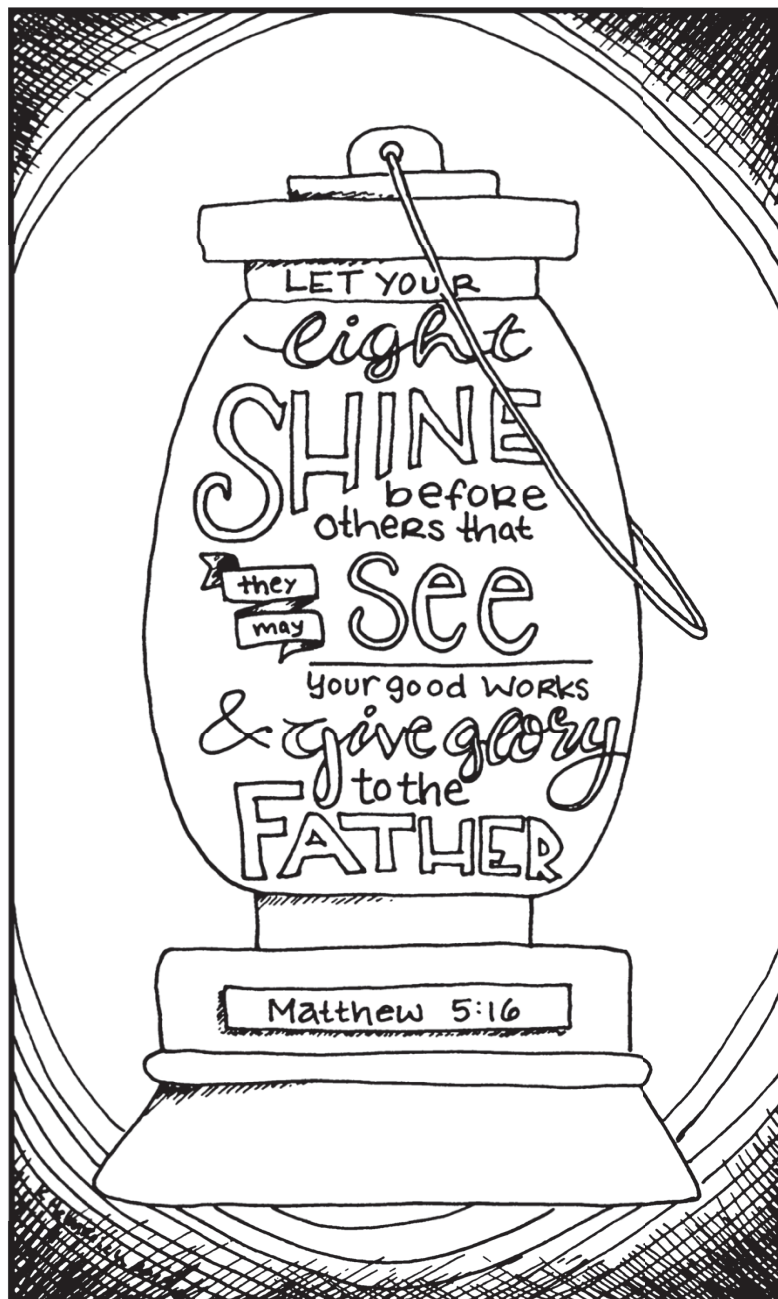 LET YOUR
light
SHINE
before
others that
they
may
see
your good works
& give glory
to the
FATHER
Matthew 5:16